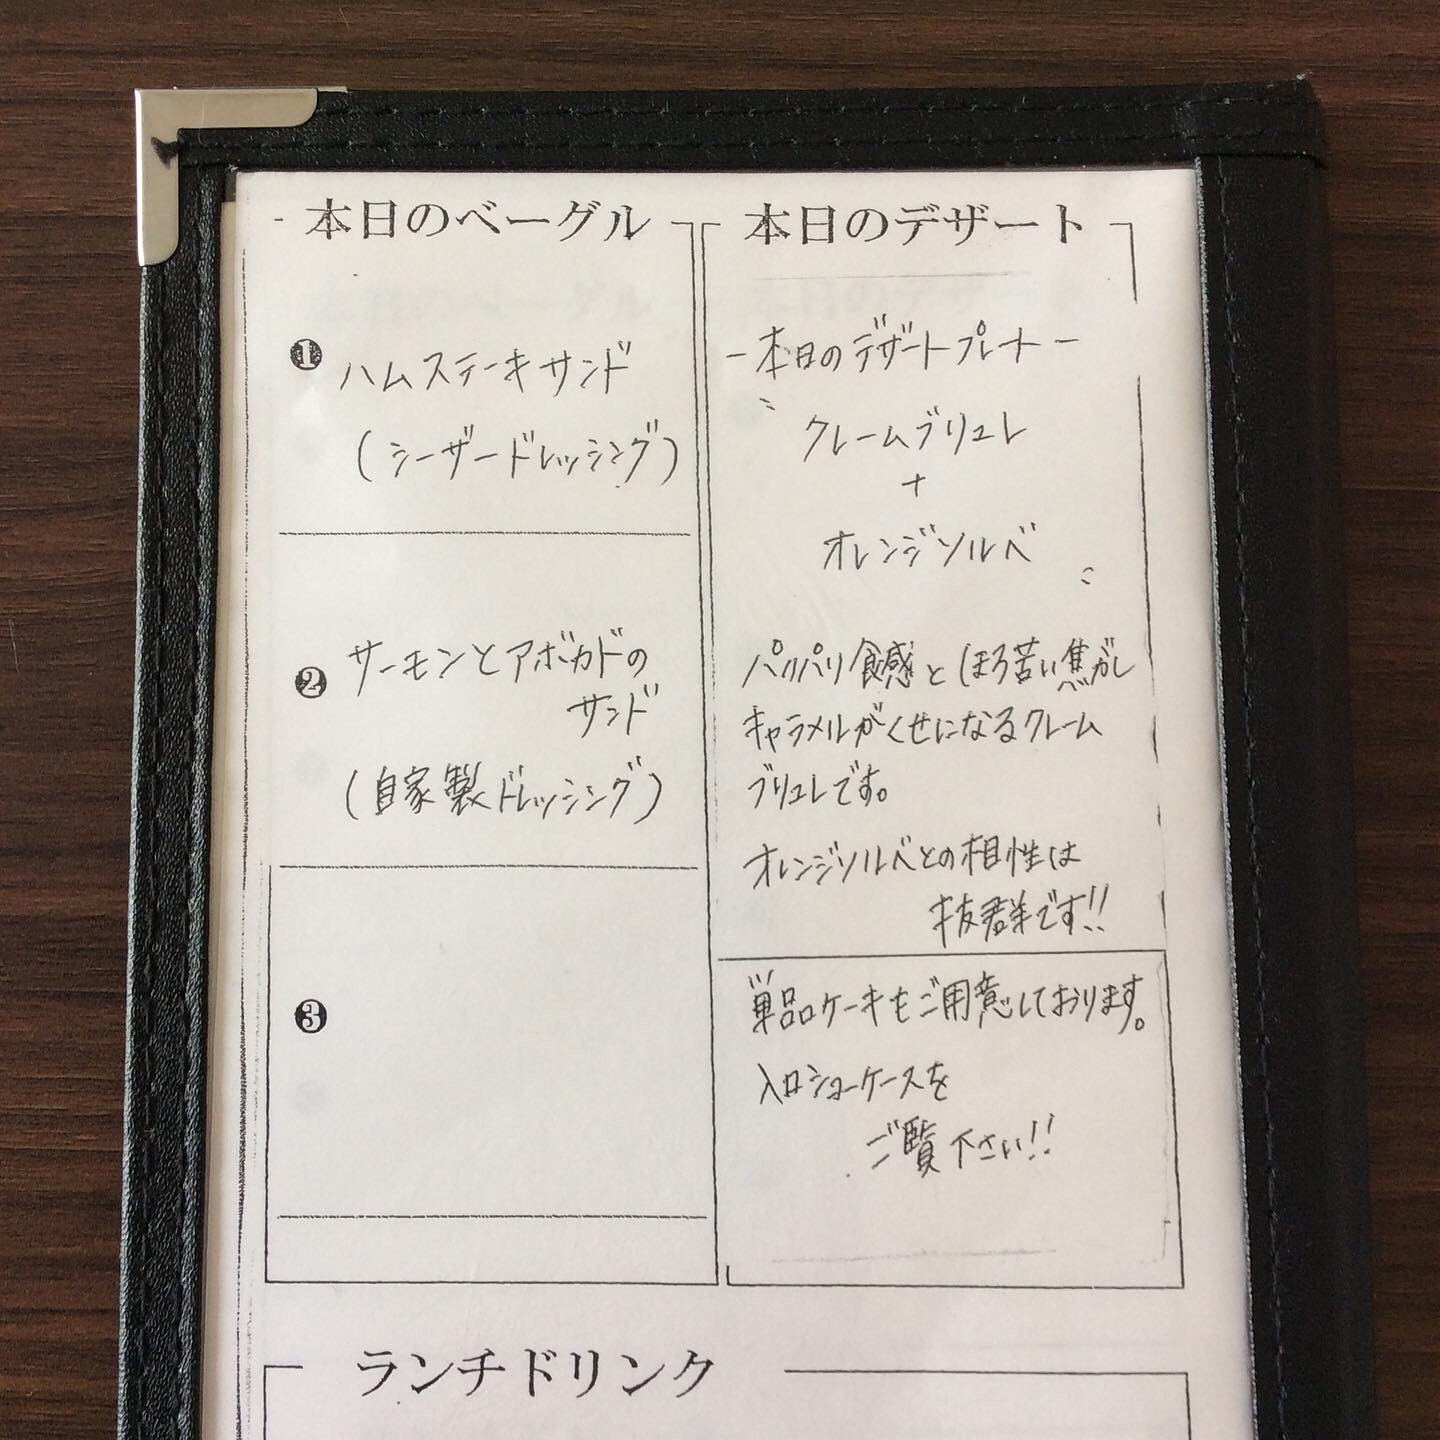 本日のベーグル
❶ハムステーキサンド
(シーザードレッシング)
❷サーモンとアボカドの
サンド
(自家製ドレッシング)
❸
本日のデザート
-本日のデザートプレート-
クレームブリュレ
+
オレンジソルベ
パリパリ食感とほろ苦い焦がし
キャラメルがくせになるクレーム
ブリュレです。
オレンジソルベとの相性は
抜群です!!
単品ケーキもご用意しております。
入口ショーケースを
ご覧下さい!!
ランチドリンク